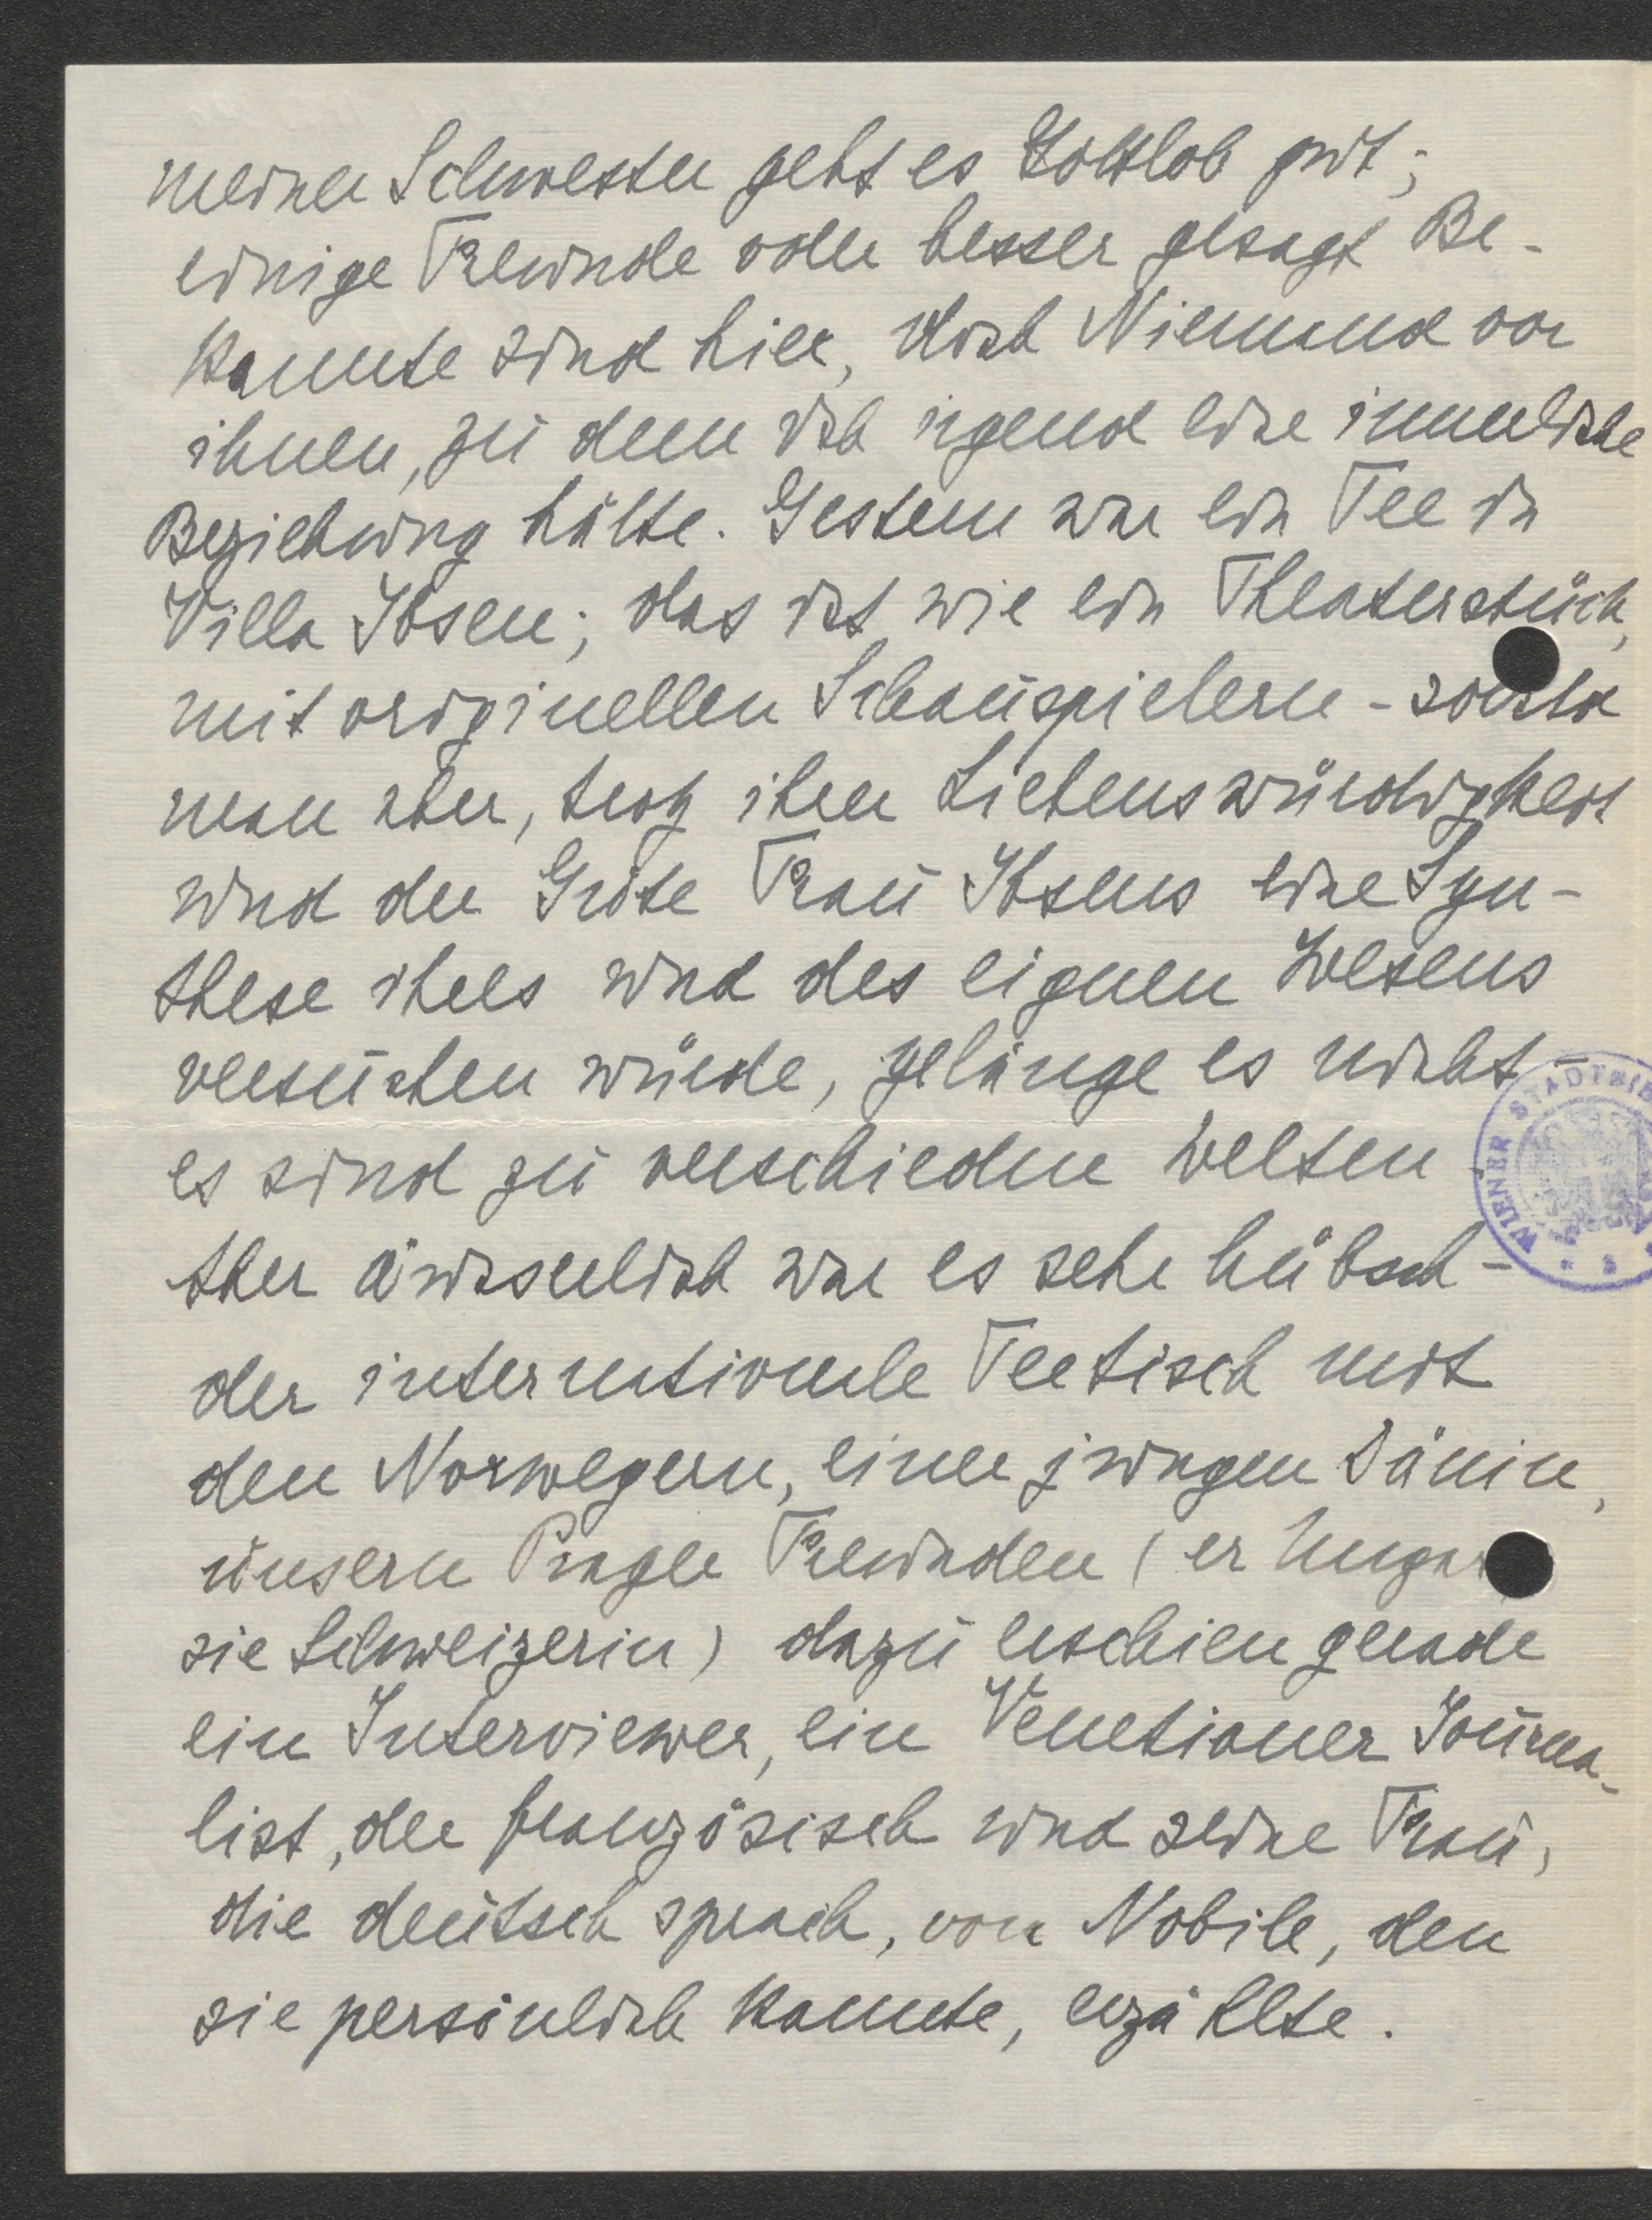 meiner Schwester geht es Gottlob gut;
einige Freunde oder besser gesagt Be-
kannte sind hier, doch Niemand von
ihnen, zu dem ich irgend eine innerliche
Beziehung hätte. Gestern war ein Tee in
Villa Ibsen; das ist wie ein Theaterstück,
mit originellen Schauspielern - sobald
man aber, trotz ihrer Liebenswürdigkeit
und der Güte Frau Ibsens eine Syn-
these ihres und des eignen Wesens
versuchen würde, gelänge es nicht -
es sind zu verschiedne Welten.
Aber äusserlich war es sehr hübsch -
der internationale Teetisch mit
den Norwegern, einer jungen Dänin,
unsern Prager Freunden (er Ungar
sie Schweizerin) dazu erschien gerade
ein Interviewer, ein Venetianer Journa-
list, der französisch und seine Frau,
die deutsch sprach, von Nobile, den
sie persönlich kannte, erzählte.
WIENER STADTBIB